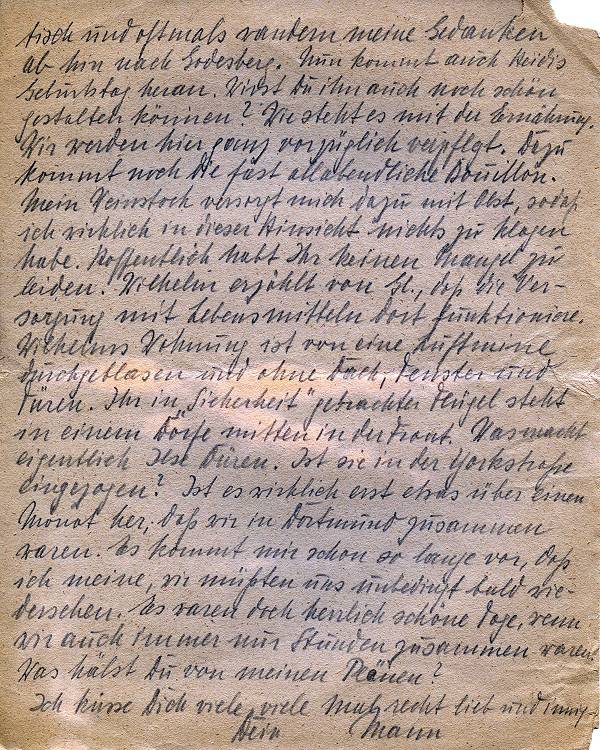 tisch und oftmals wandern meine Gedanken
ab hin nach Godesberg. Nun kommt auch Heidis
Geburtstag heran. Wirst Du ihn auch noch schön
gestalten können? Wie steht es mit der Ernährung.
Wir werden hier ganz vorzüglich verpflegt. Dazu
kommt noch die fast allabendliche Bouillon.
Mein Weinstock versorgt mich dazu mit Obst, sodaß
ich wirklich in dieser Hinsicht nichts zu klagen
habe. Hoffentlich habt Ihr keinen Mangel zu
leiden. Wilhelm erzählt von Gl., daß die Ver-
sorgung mit Lebensmitteln dort funktioniere.
Wilhelms Wohnung ist von eine Luftmine
durchgeblasen und ohne Dach, Fenster und
Türen. Ihr in "Sicherheit" gebrachter Flügel steht
in einem Dorfe mitten in der Front. Was macht
eigentlich Ilse Düren. Ist sie in der Yorkstraße
eingezogen? Ist es wirklich erst etwas über einen
Monat her, daß wir in Dortmund zusammen
waren. Es kommt mir schon so lange vor, daß
ich meine, wir müßten uns unbedingt bald wie-
dersehen. Es waren doch herrlich schöne Tage, wenn
wir auch immer nur Stunden zusammen waren.
Was hälst Du von meinen Plänen?
Ich küsse Dich viele, viele Mal recht lieb und innig
Dein Mann